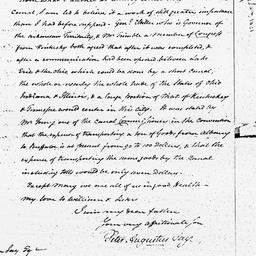 Canal, I am led to believe it a work of still greater importance
than I had before supposed. Gen.l Miller who is Governor of
the Arkansaw Territory, & Mr Trimble a Member of Congress
from Kentucky both agreed that after it was completed, &
after a communication had been opened between Lake
Erie & the Ohio which could be done by a short Canal,
the whole or nearly the whole trade of the States of Ohio
Indiana & Illinois, & a large portion of that of Kentuckey
& Tennessee would center in this City. It was stated by
Mr Young one of the Canal Commissioners in the Convention
that the expense of transporting a ton of Goods from Albany
to Buffalo is at present from 90 to 100 dollars, & that the
expense of transporting the same goods by the Canal
including tolls would be only seven dollars.
Except Mary we are all of us in good Health—
My love to William & Sister
I am my dear father
Your very affectionate Son
Peter Augustus Jay.
Jay Esq.